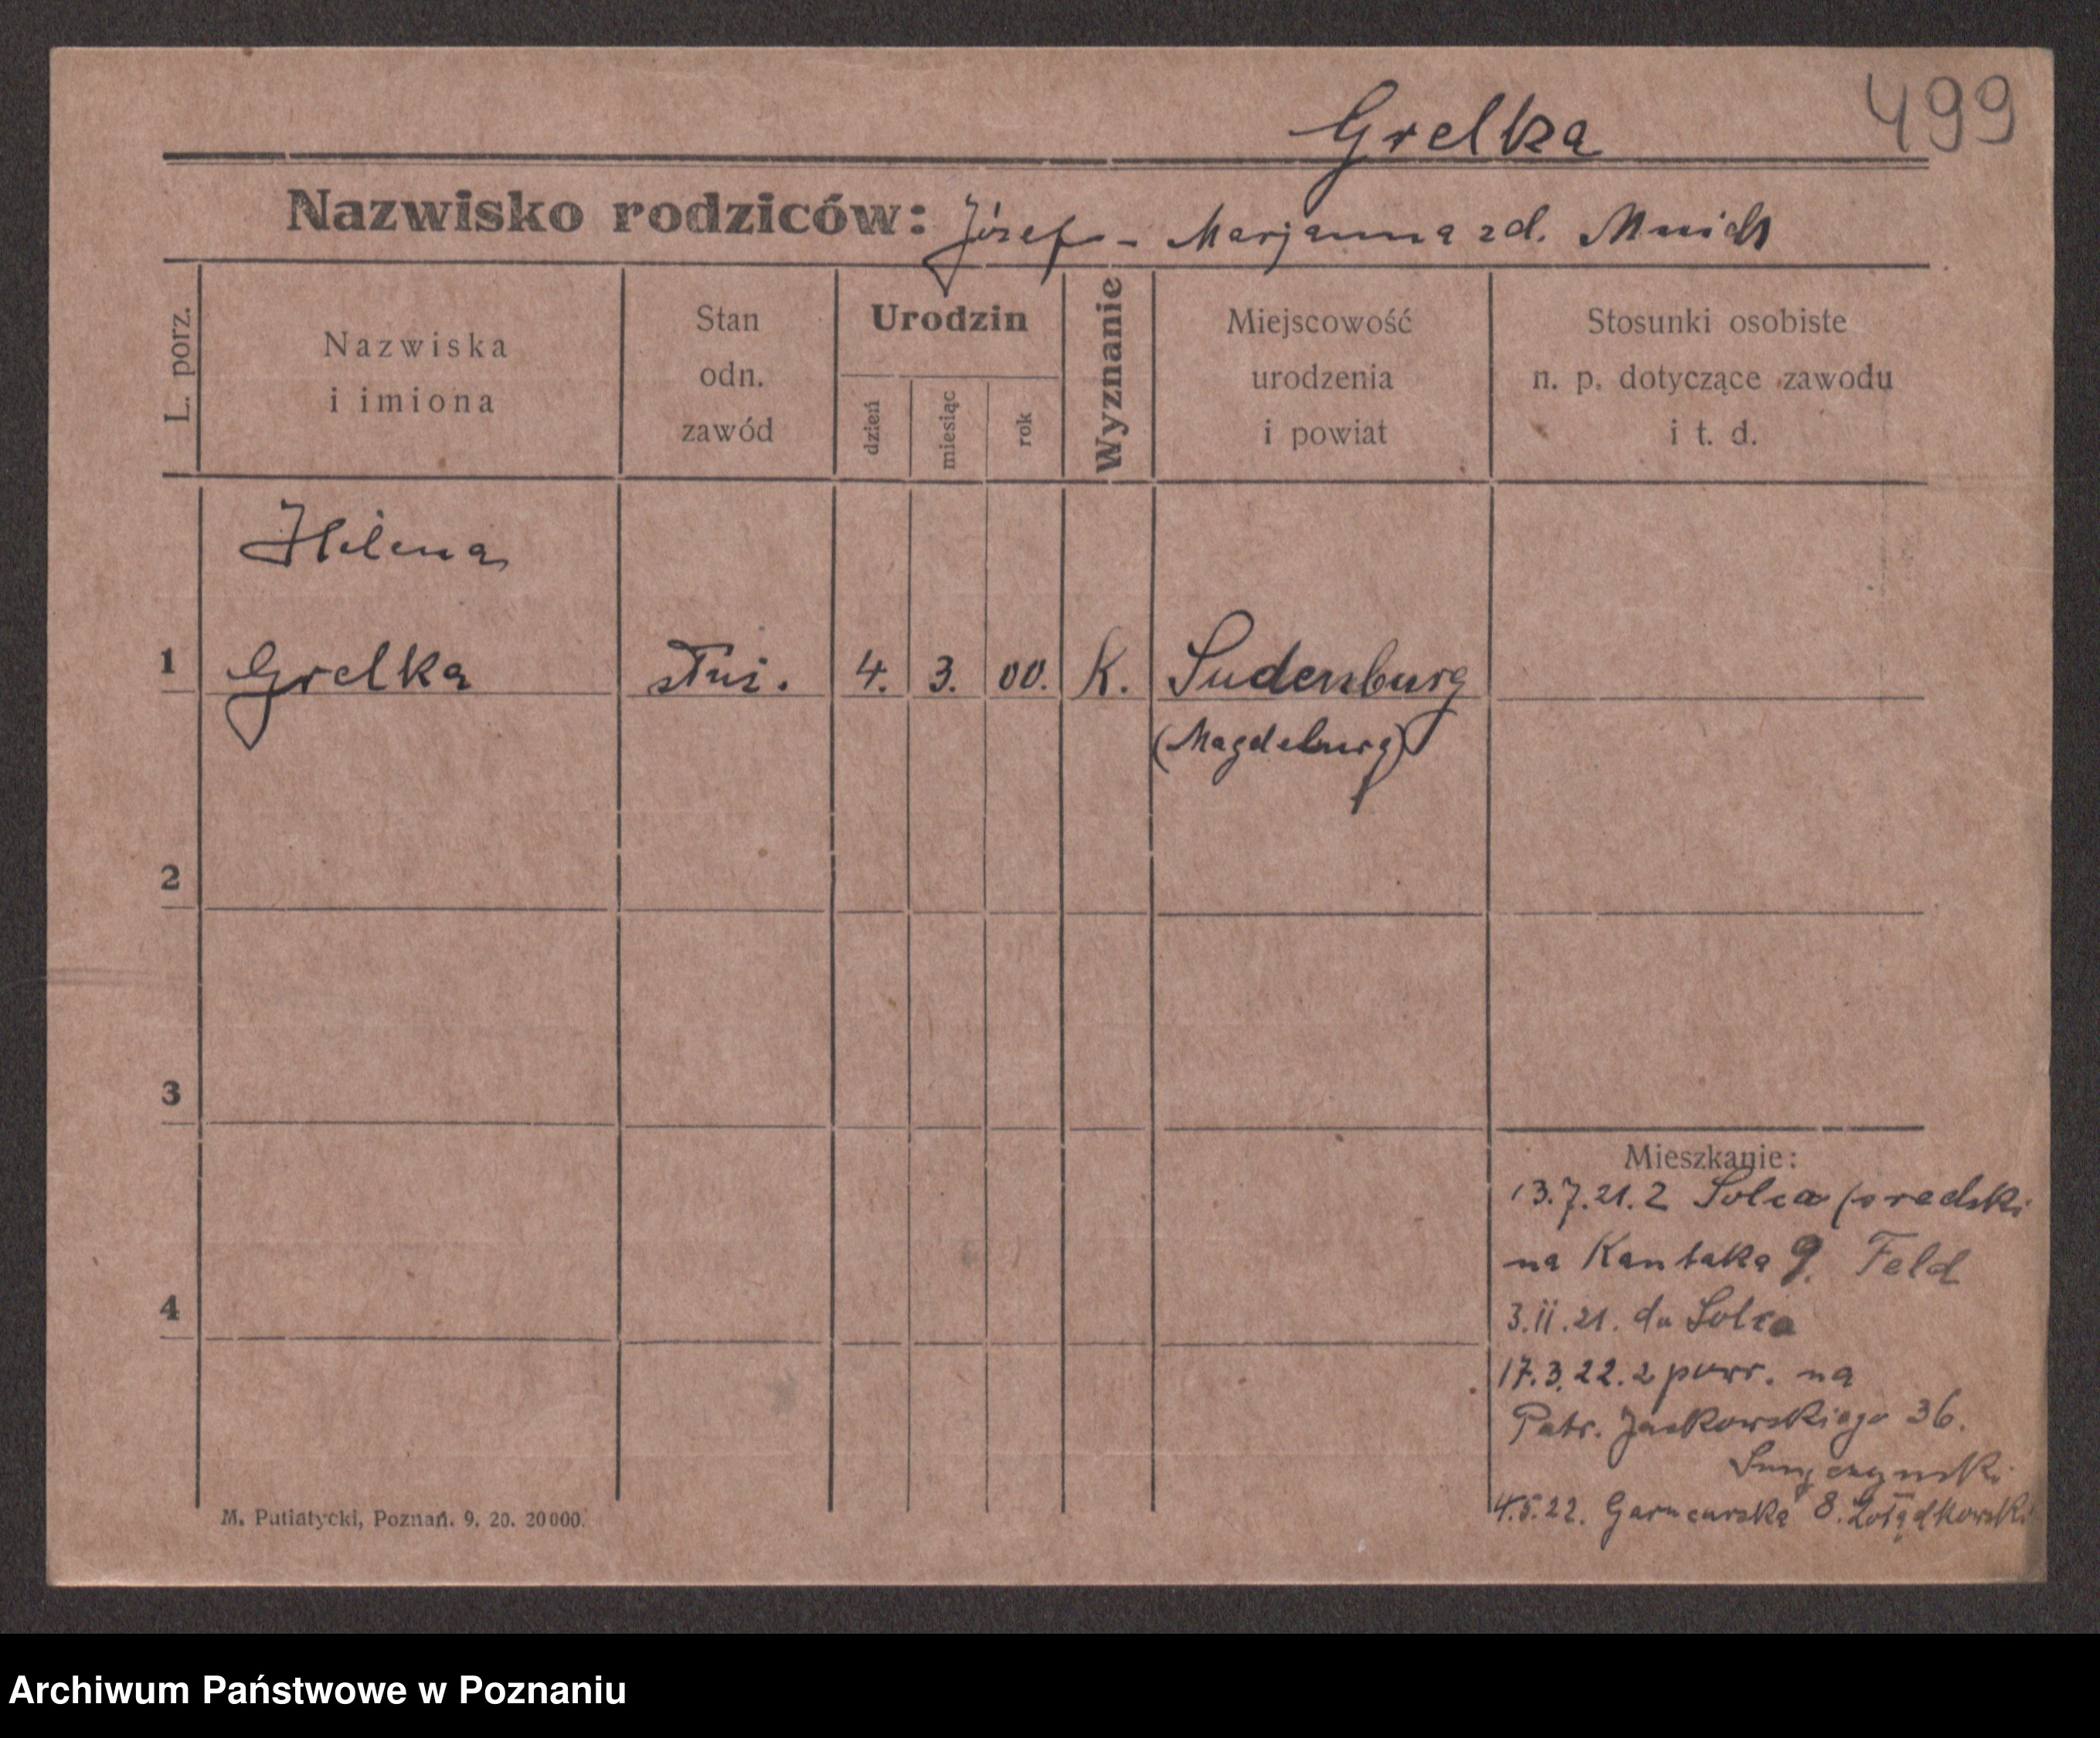 499
Grelka
Nazwisko rodziców: Józef - Marjanna zd. Mnich
L. porz.
Nazwiska
i imiona
Stan
odn.
zawód
Urodzin
dzień
miesiąc
rok
Wyznanie
Miejscowość
urodzenia
i powiat
Stosunki osobiste
n. p. dotyczące zawodu
i t. d.
Helena
1 Grelka służ. 4. 3. 00. K. Sudenburg
(Magdeburg)
2
3
4
Mieszkanie:
13.7.21. z Solca średzki
na Kantaka 9. Feld
3.11.21. do Solca
17.3.22. z powr. na
Patr. Jackowskiego 36.
4.5.22. Garncarska 8. Żołądkowski
M. Putiatycki, Poznań. 9. 20. 20000.
Archiwum Państwowe w Poznaniu